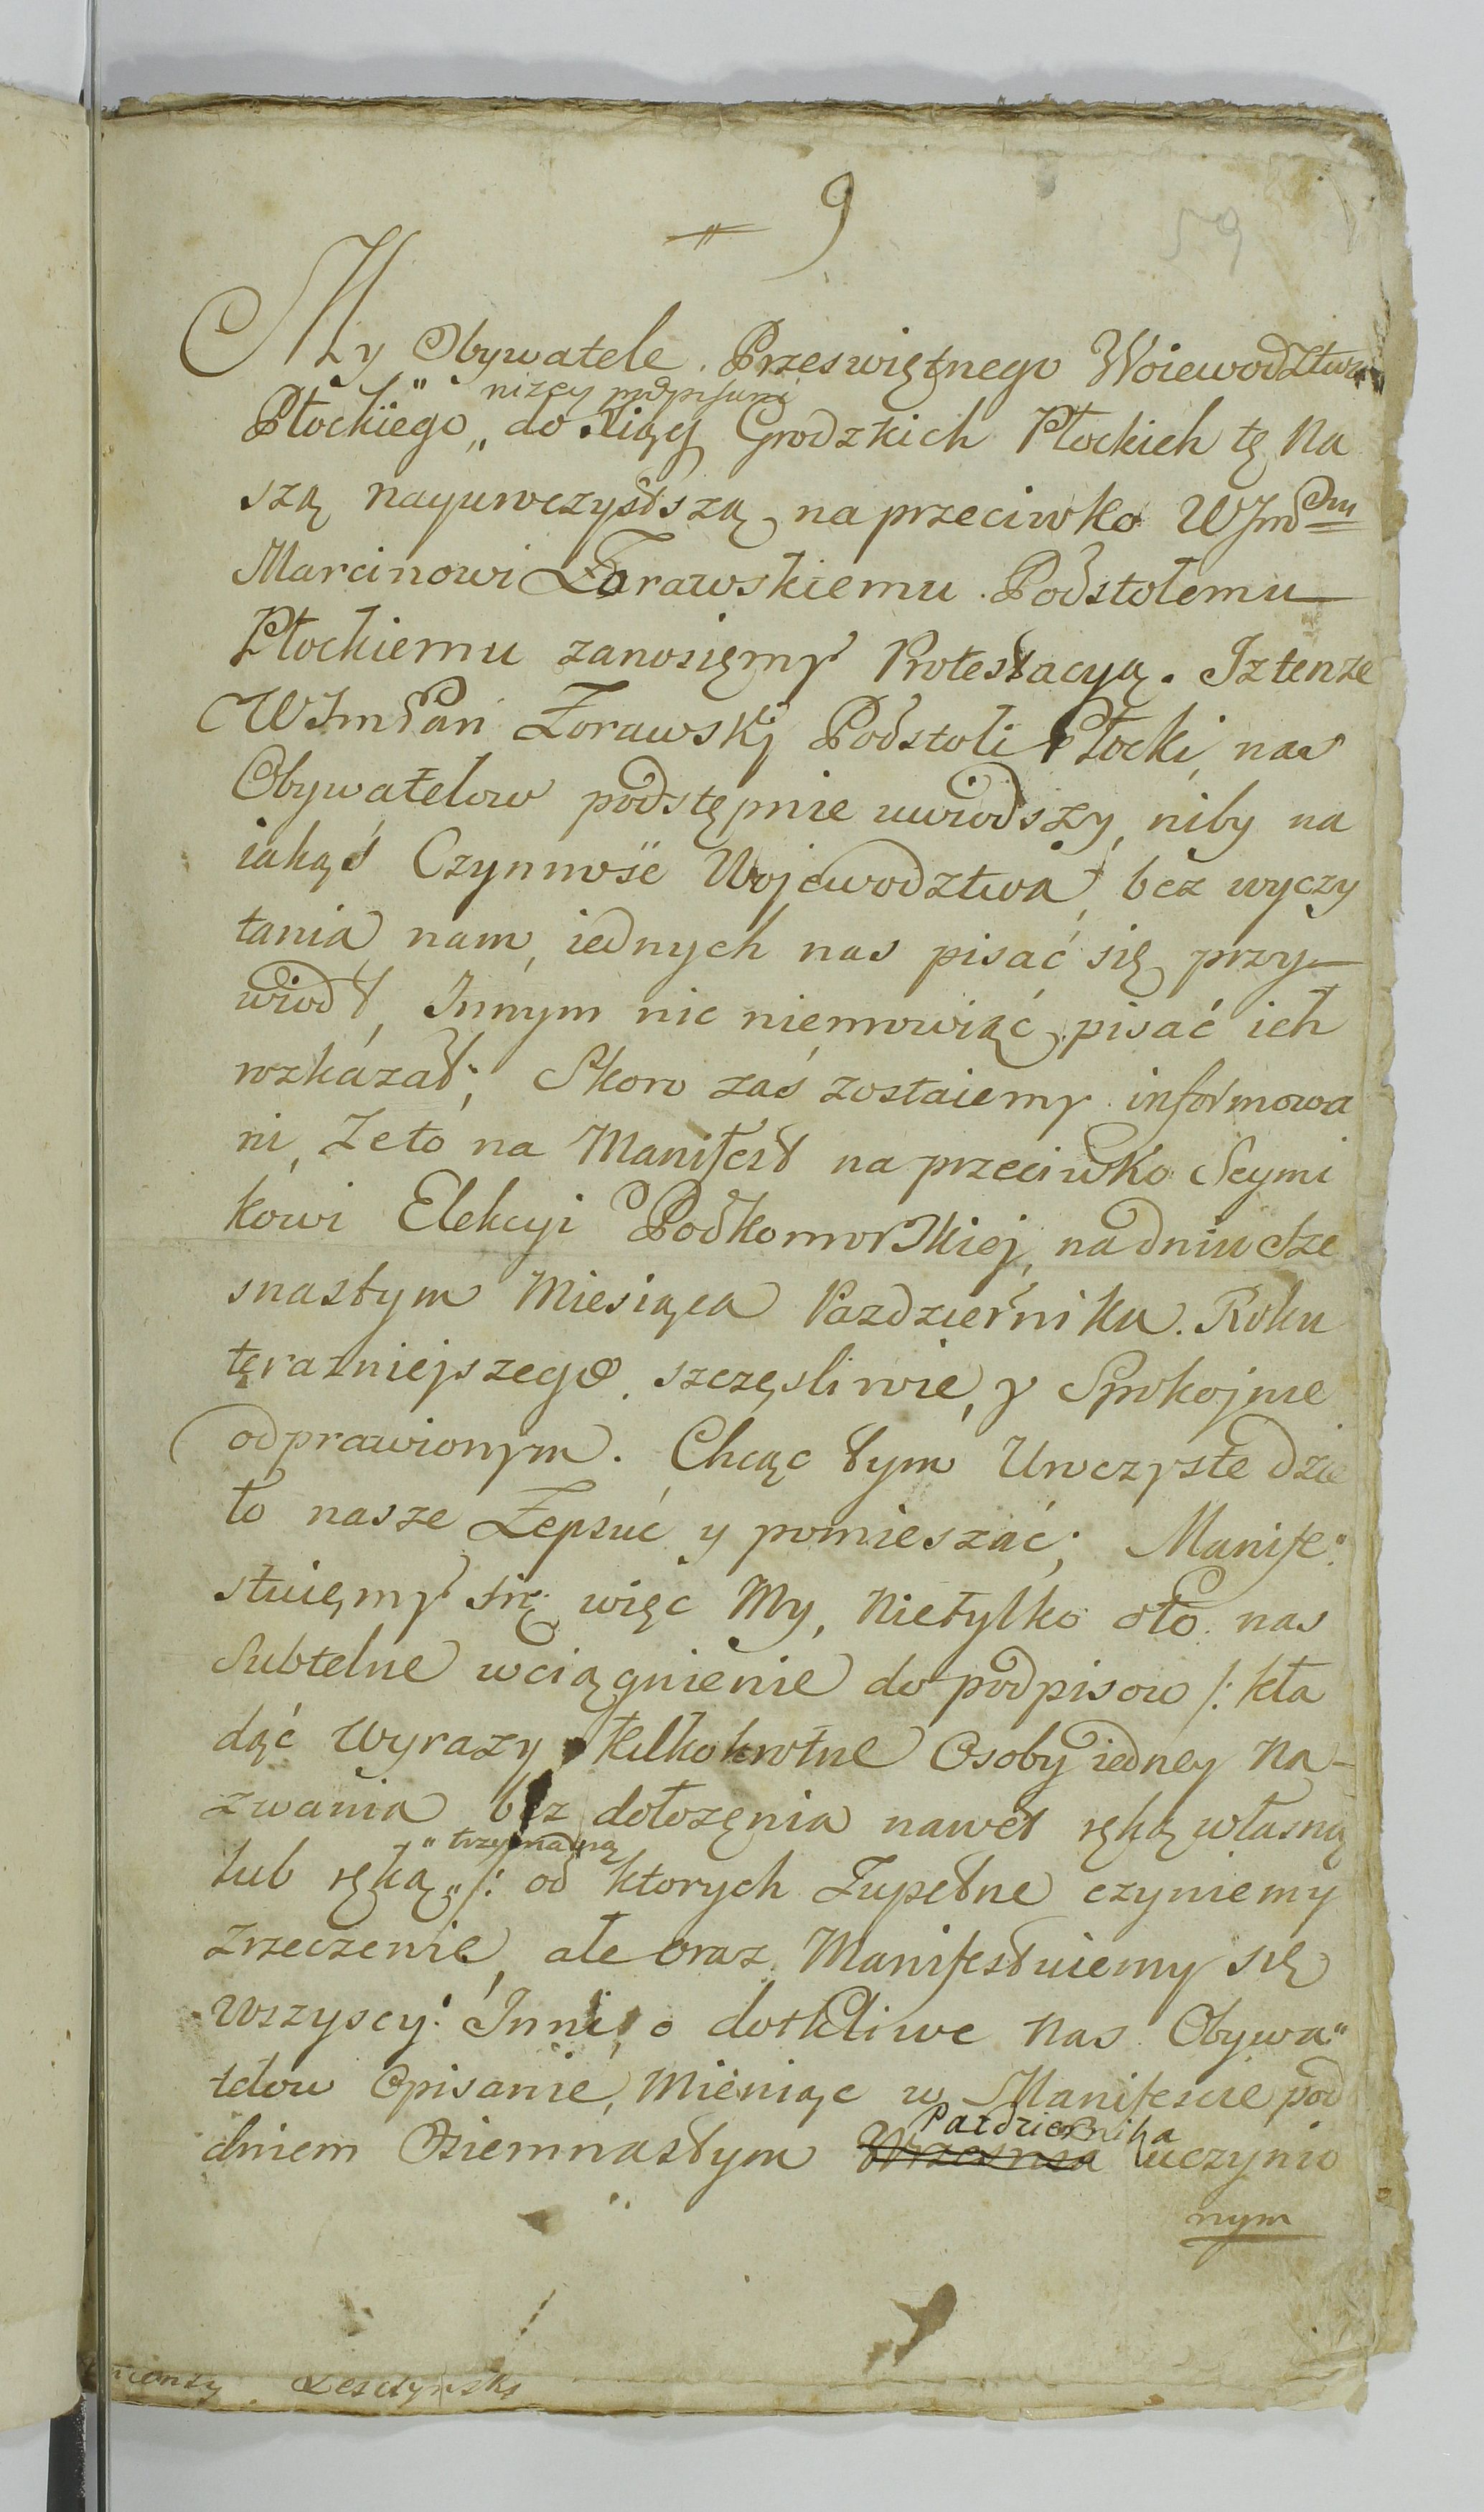 9
59
My Obywatele Przeswiętnego Woiewodztwa
niżey podpisani
Płockiego,, do Xiąg Grodzkich Płockich tę Na
szą nayuroczystszą, naprzeciwko WJm Pnu
Marcinowi Żorawskiemu Podstolemu
Płockiemu zanosięmy Protestacyą. Iz tenze
WJmPan Żorawskj Podstoli Płocki, nas
Obywatelow podstępnie uwiodszy, niby na
iakąś Czynność Wojewodztwa, bez wyczy
tania nam, iednych nas pisać się przy
wiodł, Innym nic niemowiąć pisać ich
rozkazał; Skoro zaś zostaiemy informowa
ni, Żeto na Manifest naprzeciwko Seymi
kowi Elekcyi Podkomorskiej, na dniu Sze
snastym Miesiąca Pazdziernika. Roku
tęrazniejszego szczęsliwie, y Spokojnie
odprawionym. Chcąc tym Uroczyste dzie
ło nasze Zepsuć y pomieszać; Manife"
stuięmy się więc My, Nietylko oto nas
Subtelne wciągnienie do podpisow /: kła
dąć wyrazy kilkokrotne Osoby iedney Na-
zwania bez dołozęnia nawet ręką własną
trzymaną
lub ręką,, /: od ktorych Zupełne czyniemy
Zrzeczenie, ale oraz Manifestuiemy się
Wszyscy Inni, o dotkliwe nas Obywa"
telow Opisanie, Mieniąc w Manifescie pod
Pazdziernika
dniem Osiemnastym Wrzesnia uczynio
nym
Lesczynski